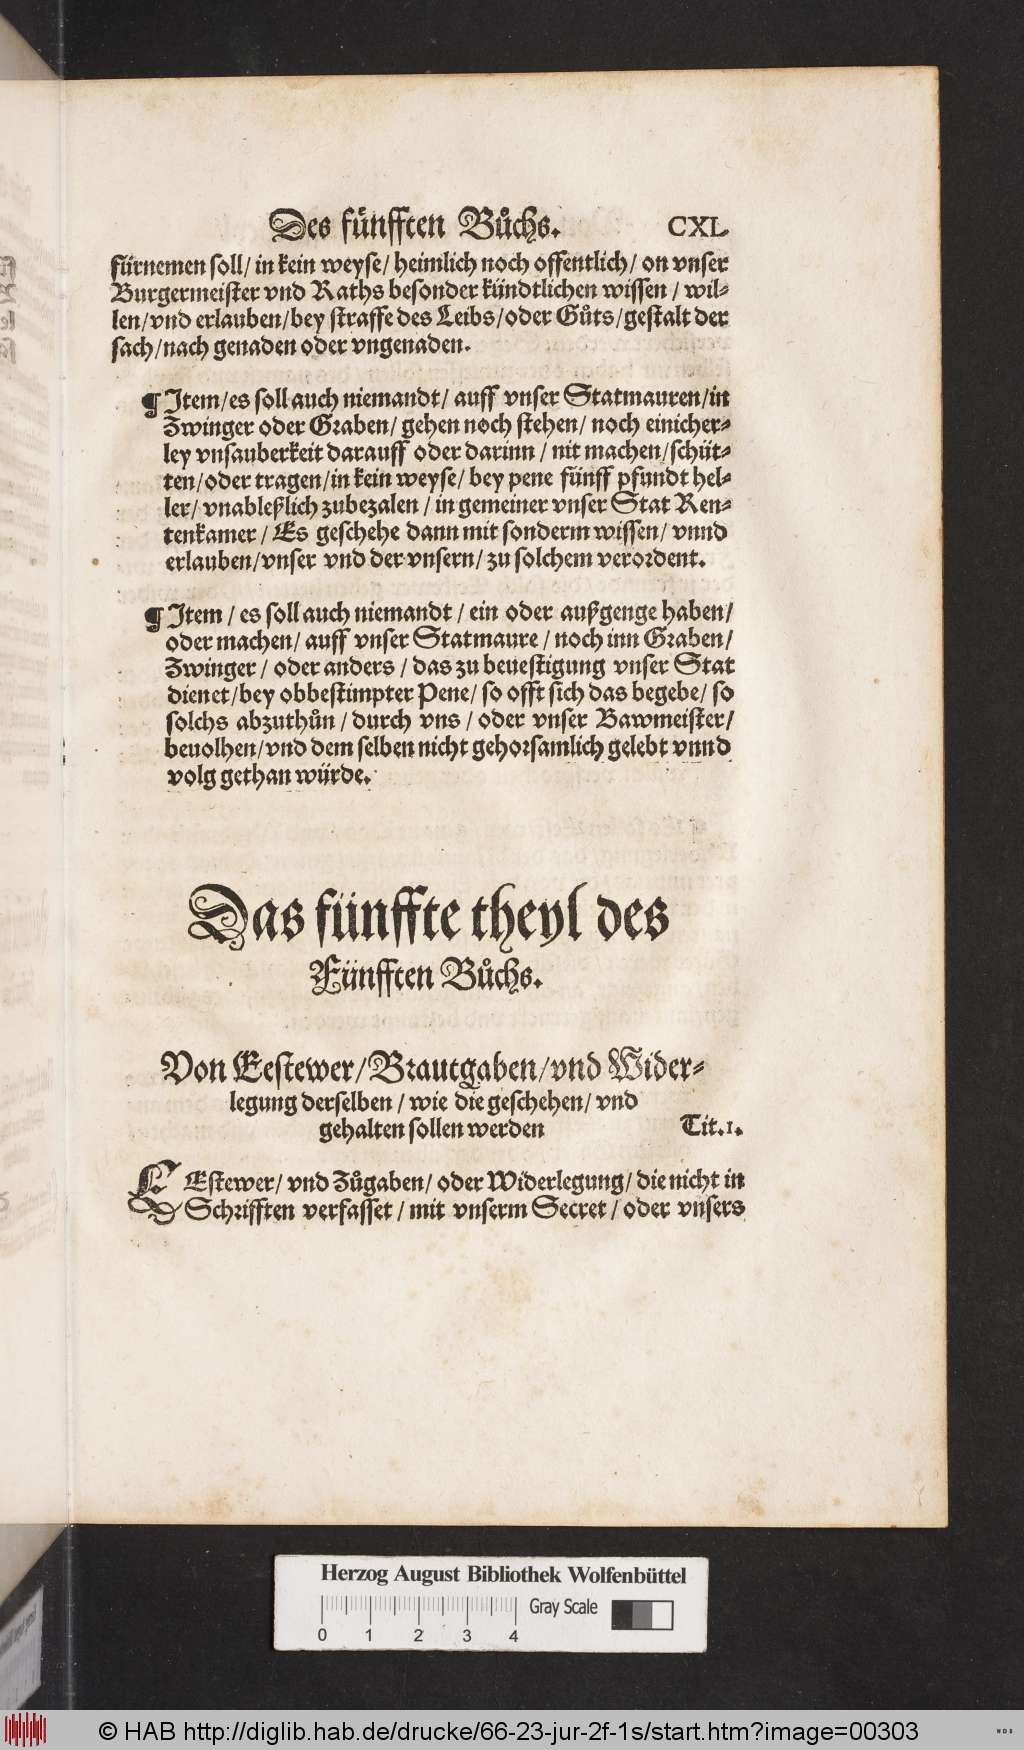 Des fünfften Bůchs. CXL.
fürnemen soll/ in kein weyse/ heimlich noch offentlich/ on vnser
Burgermeister vnd Raths besonder kündtlichen wissen / wil-
len/vnd erlauben/bey straffe des Leibs/oder Gůts/gestalt der
sach/nach genaden oder vngenaden.
¶ Item/es soll auch niemandt/ auff vnser Statmauren/in
Zwinger oder Graben/ gehen noch stehen/ noch einicher-
ley vnsauberkeit darauff oder darinn / nit machen/schüt-
ten/oder tragen/in kein weyse/ bey pene fünff pfundt hel-
ler/ vnableßlich zubezalen / in gemeiner vnser Stat Ren-
tenkamer / Es geschehe dann mit sonderm wissen/ vnnd
erlauben/vnser vnd der vnsern/ zu solchem verordent.
¶ Item / es soll auch niemandt / ein oder außgenge haben/
oder machen/ auff vnser Statmaure / noch inn Graben/
Zwinger / oder anders / das zu beuestigung vnser Stat
dienet/bey obbestimpter Pene/ so offt sich das begebe/ so
solchs abzuthůn / durch vns / oder vnser Bawmeister/
beuolhen/vnd dem selben nicht gehorsamlich gelebt vnnd
volg gethan würde.
Das fünffte theyl des
Fünfften Bůchs.
Von Eestewer/Brautgaben/vnd Wider-
legung derselben / wie die geschehen/ vnd
gehalten sollen werden Tit.1.
EEstewer/ vnd Zůgaben/ oder Widerlegung/ die nicht in
Schrifften verfasset / mit vnserm Secret / oder vnsers
Herzog August Bibliothek Wolfenbüttel
Gray Scale
0 1 2 3 4
© HAB http://diglib.hab.de/drucke/66-23-jur-2f-1s/start.htm?image=00303